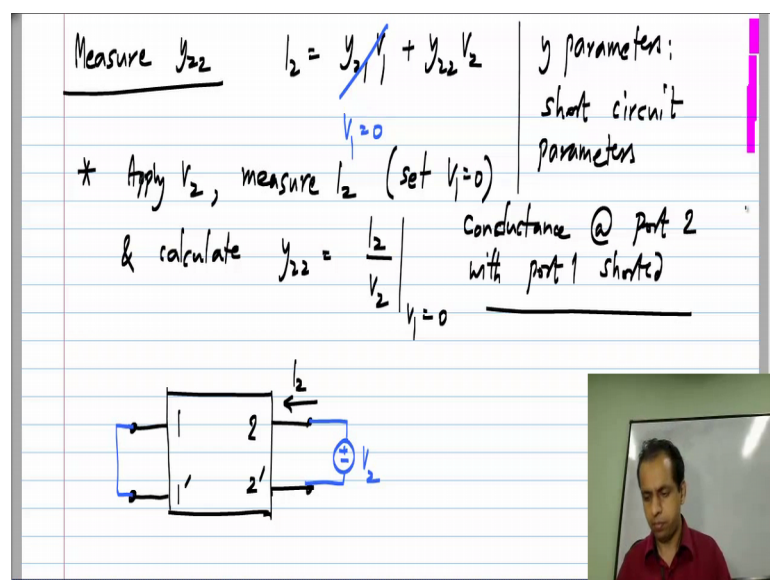 Measure y22 I2 = y21 V1 + y22 V2
V1 = 0
y parameters:
short circuit
parameters
* Apply V2, measure I2 (set V1=0)
& calculate y22 = I2/V2 | V1 = 0
Conductance @ port 2
with port 1 shorted
I2
1 2
1' 2'
± V2